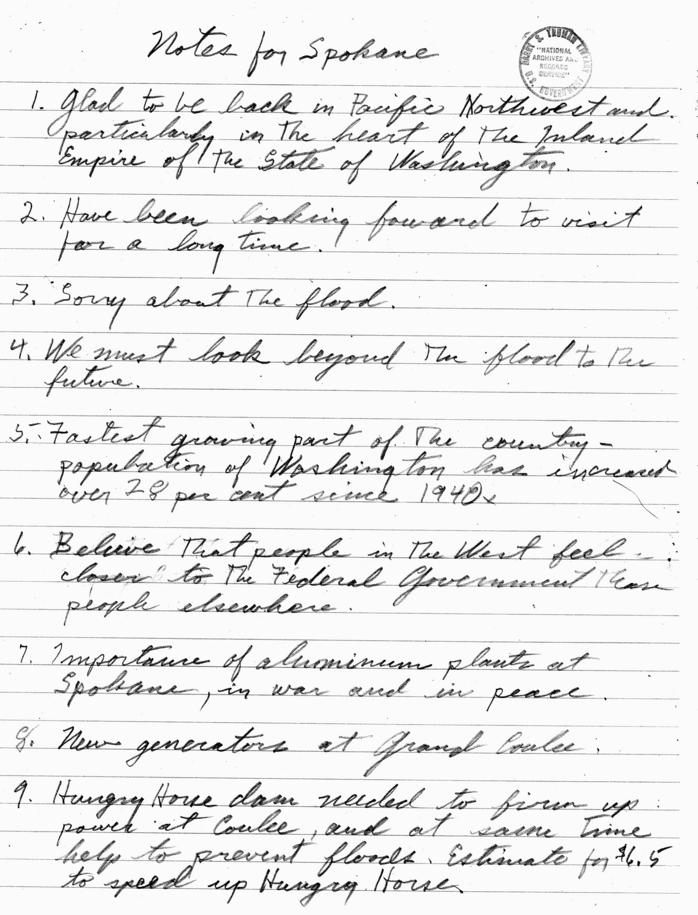 Notes for Spokane
HARRY S. TRUMAN LIBRARY
"NATIONAL
ARCHIVES AND
RECORDS
SERVICE"
U.S. GOVERNMENT
1. Glad to be back in Pacific Northwest and
particularly in the heart of the Inland
Empire of the State of Washington.
2. Have been looking forward to visit
for a long time.
3. Sorry about the flood.
4. We must look beyond the flood to the
future.
5. Fastest growing part of the country –
population of Washington has increased
over 28 per cent since 1940.
6. Believe that people in the West feel
closer to the Federal Government than
people elsewhere.
7. Importance of aluminum plants at
Spokane, in war and in peace.
8. New generators at Grand Coulee.
9. Hungry Horse dam needed to firm up
power at Coulee, and at same time
help to prevent floods. Estimate for $6.5
to speed up Hungry Horse.